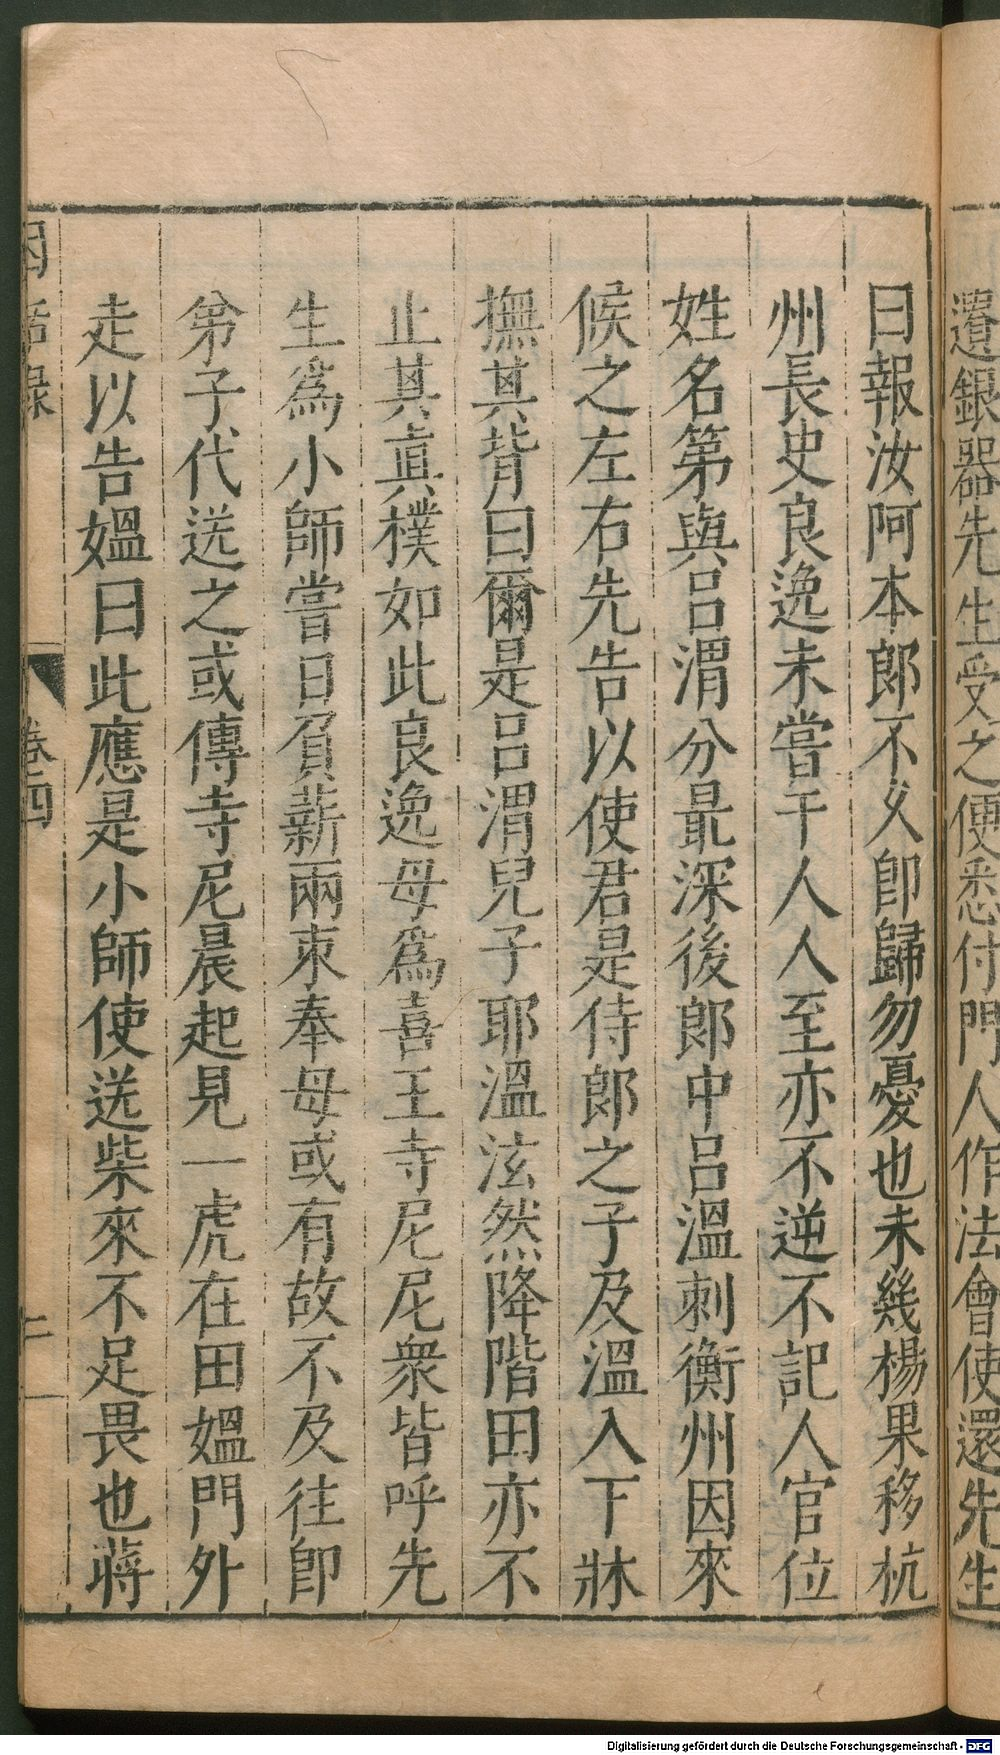 遺銀器先生受之便悉付門人作法會使還先生
曰報汝阿本郎不久卽歸勿憂也未幾楊果移杭
州長史良逸未嘗干人人至亦不逆不記人官位
姓名第與呂渭分最深後郎中呂溫刺衡州因來
候之左右先告以使君是侍郎之子及溫入下牀
撫其背曰爾是呂渭兒子耶溫泫然降階田亦不
止其眞樸如此良逸母爲喜王寺尼尼衆皆呼先
生爲小師嘗日負薪兩束奉母或有故不及往卽
弟子代送之或傳寺尼晨起見一虎在田媼門外
走以告媼曰此應是小師使送柴來不足畏也蔣
因話錄
卷四
Digitalisierung gefördert durch die Deutsche Forschungsgemeinschaft - DFG